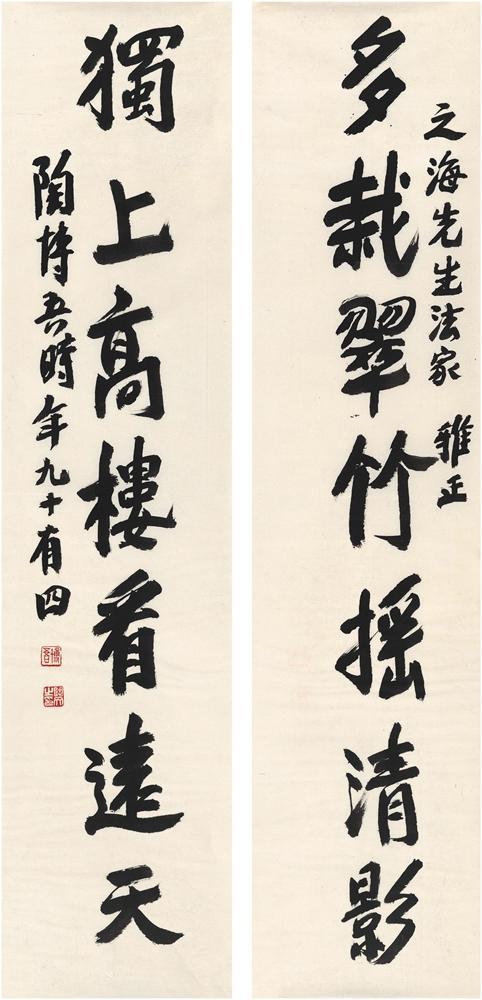 之海先生法家 雅正
多栽翠竹摇清影
獨上高樓看遠天
陶博吾時年九十有四
博吾